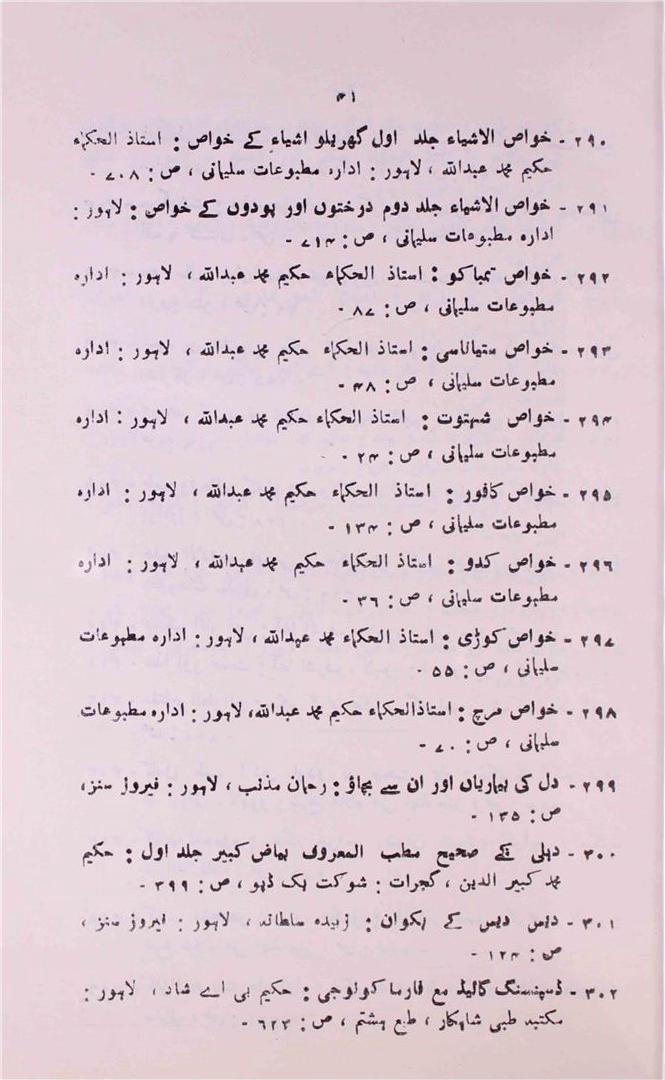 ۴۱
۲۹۰ - خواص الاشیاء جلد اول گھریلو اشیاء کے خواص : استاذ الحکماء
حکیم محمد عبداللہ ، لاہور : ادارہ مطبوعات سلیمانی ، ص : ۷۰۸ -
۲۹۱ - خواص الاشیاء جلد دوم درختوں اور پودوں کے خواص : لاہور :
ادارہ مطبوعات سلیمانی ، ص : ۷۱۴ -
۲۹۲ - خواص تمباکو : استاذ الحکماء حکیم محمد عبداللہ ، لاہور : ادارہ
مطبوعات سلیمانی ، ص : ۸۷ -
۲۹۳ - خواص ستیاناسی : استاذ الحکماء حکیم محمد عبداللہ ، لاہور : ادارہ
مطبوعات سلیمانی ، ص : ۴۸ -
۲۹۴ - خواص شہتوت : استاذ الحکماء حکیم محمد عبداللہ ، لاہور : ادارہ
مطبوعات سلیمانی ، ص : ۲۴ -
۲۹۵ - خواص کافور : استاذ الحکماء حکیم محمد عبداللہ ، لاہور : ادارہ
مطبوعات سلیمانی ، ص : ۱۳۴ -
۲۹۶ - خواص کدو : استاذ الحکماء حکیم محمد عبداللہ ، لاہور : ادارہ
مطبوعات سلیمانی ، ص : ۳۶ -
۲۹۷ - خواص کوڑی : استاذ الحکماء حکیم محمد عبداللہ ، لاہور : ادارہ مطبوعات
سلیمانی ، ص : ۵۵ -
۲۹۸ - خواص مرچ : استاذالحکماء حکیم محمد عبداللہ، لاہور : ادارہ مطبوعات
سلیمانی ، ص : ۷۰ -
۲۹۹ - دل کی بیماریاں اور ان سے بچاؤ : رحمان مذنب ، لاہور : فیروز سنز،
ص : ۱۳۵ -
۳۰۰ - دہلی کے صحیح مطب المعروف بیاض کبیر جلد اول : حکیم
محمد کبیر الدین ، گجرات : شوکت بک ڈپو ، ص : ۳۹۹ -
۳۰۱ - دیس دیس کے پکوان : زبیدہ سلطانہ ، لاہور : فیروز سنز ،
ص : ۱۲۴ -
۳۰۲ - ڈسپنسنگ گائیڈ مع فارما کولوجی : حکیم بی اے شاد ، لاہور :
مکتبہ طبی شاہکار ، طبع ہشتم ، ص : ۶۲۳ -